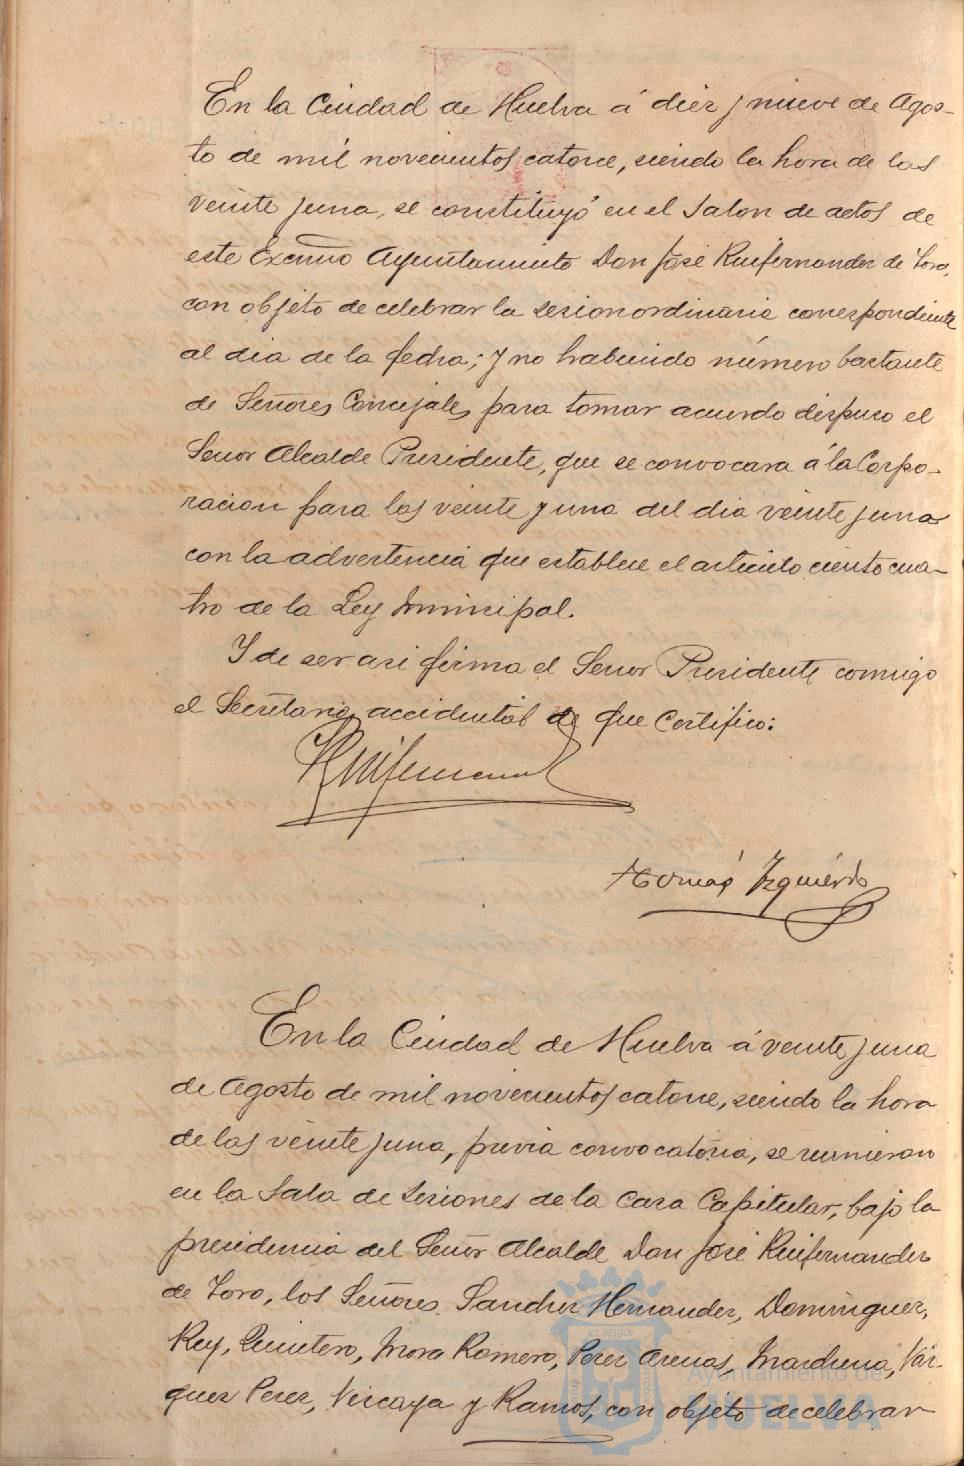 En la Ciudad de Huelva á diez y nueve de Agos-
to de mil novecientos catorce, siendo la hora de las
veinte y una, se constituyó en el Salon de actos de
este Excmo Ayuntamiento Don José Ruifernandez de Toro,
con objeto de celebrar la sesion ordinaria correspondiente
al dia de la fecha; y no habiendo número bastante
de Señores Concejales para tomar acuerdo dispuso el
Señor Alcalde Presidente, que se convocara á la Corpo-
racion para las veinte y una del dia veinte y una
con la advertencia que establece el articulo ciento cua-
tro de la Ley Municipal.
Y de ser asi firma el Señor Presidente conmigo
el Secretario accidental de que Certifico:
Ruifernandez
Tomás Izquierdo
En la Ciudad de Huelva á veinte y una
de Agosto de mil novecientos catorce, siendo la hora
de las veinte y una, previa convocatoria, se reunieron
en la Sala de Sesiones de la Casa Capitular, bajo la
presidencia del Señor Alcalde Don José Ruifernandez
de Toro, los Señores Sanchez Hernandez, Dominguez,
Rey, Quintero, Mora Romero, Perez Arenas, Marchena, Váz-
quez Perez, Vizcaya y Ramos, con objeto de celebrar
Ayuntamiento de
HUELVA